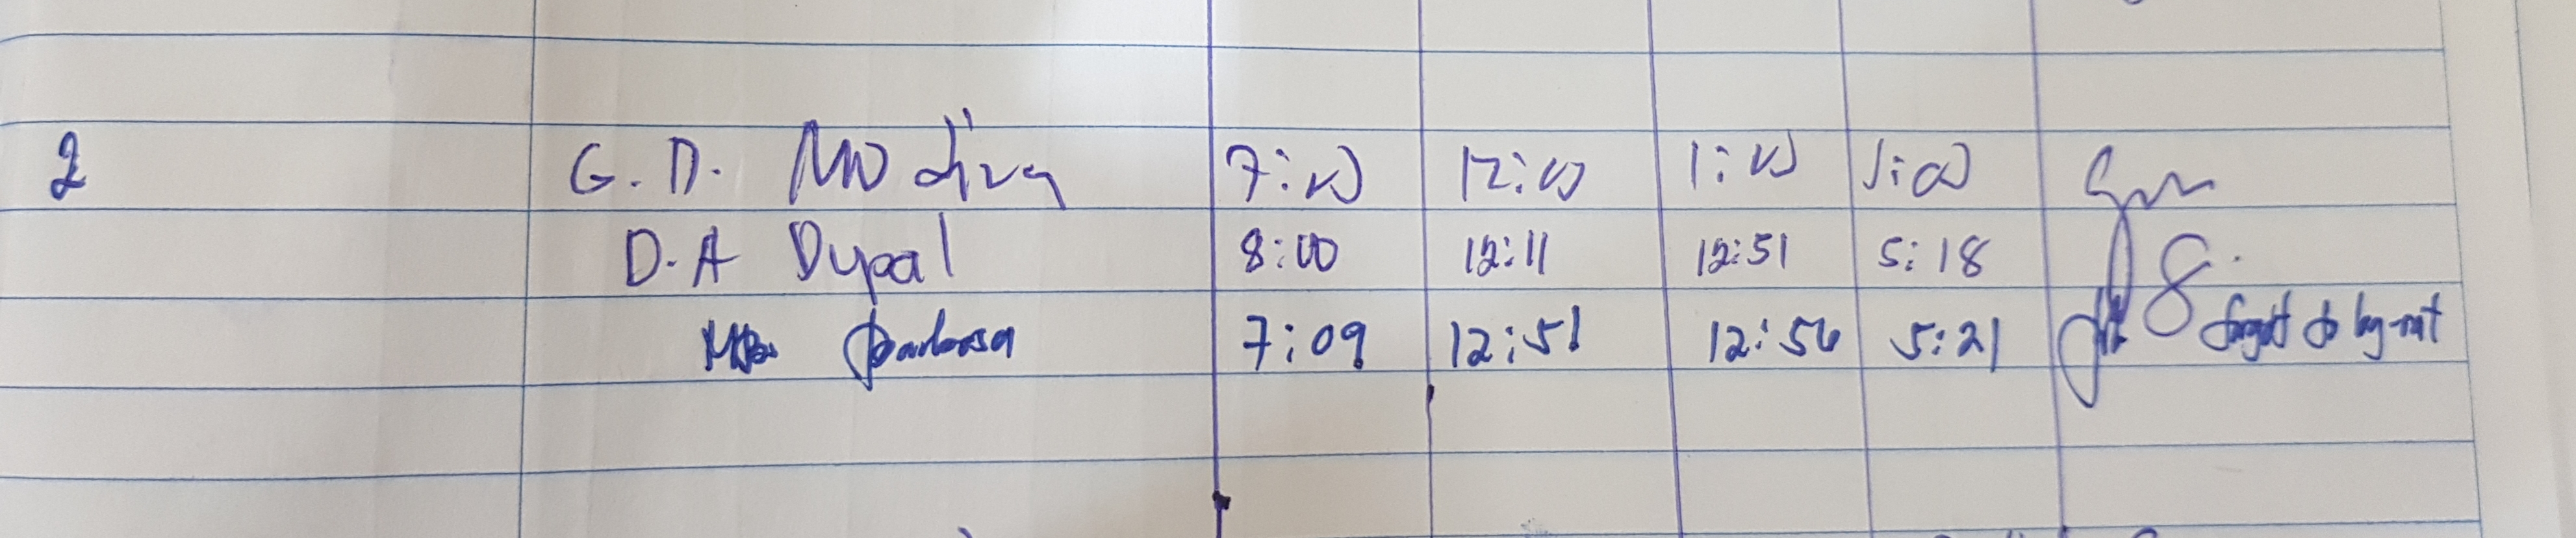 2 G. D. 7:00 12:00 1:00 5:00
D.A Dypal 8:00 12:11 12:51 5:18
Barbosa 7:09 12:51 12:56 5:21 forgot to log-out